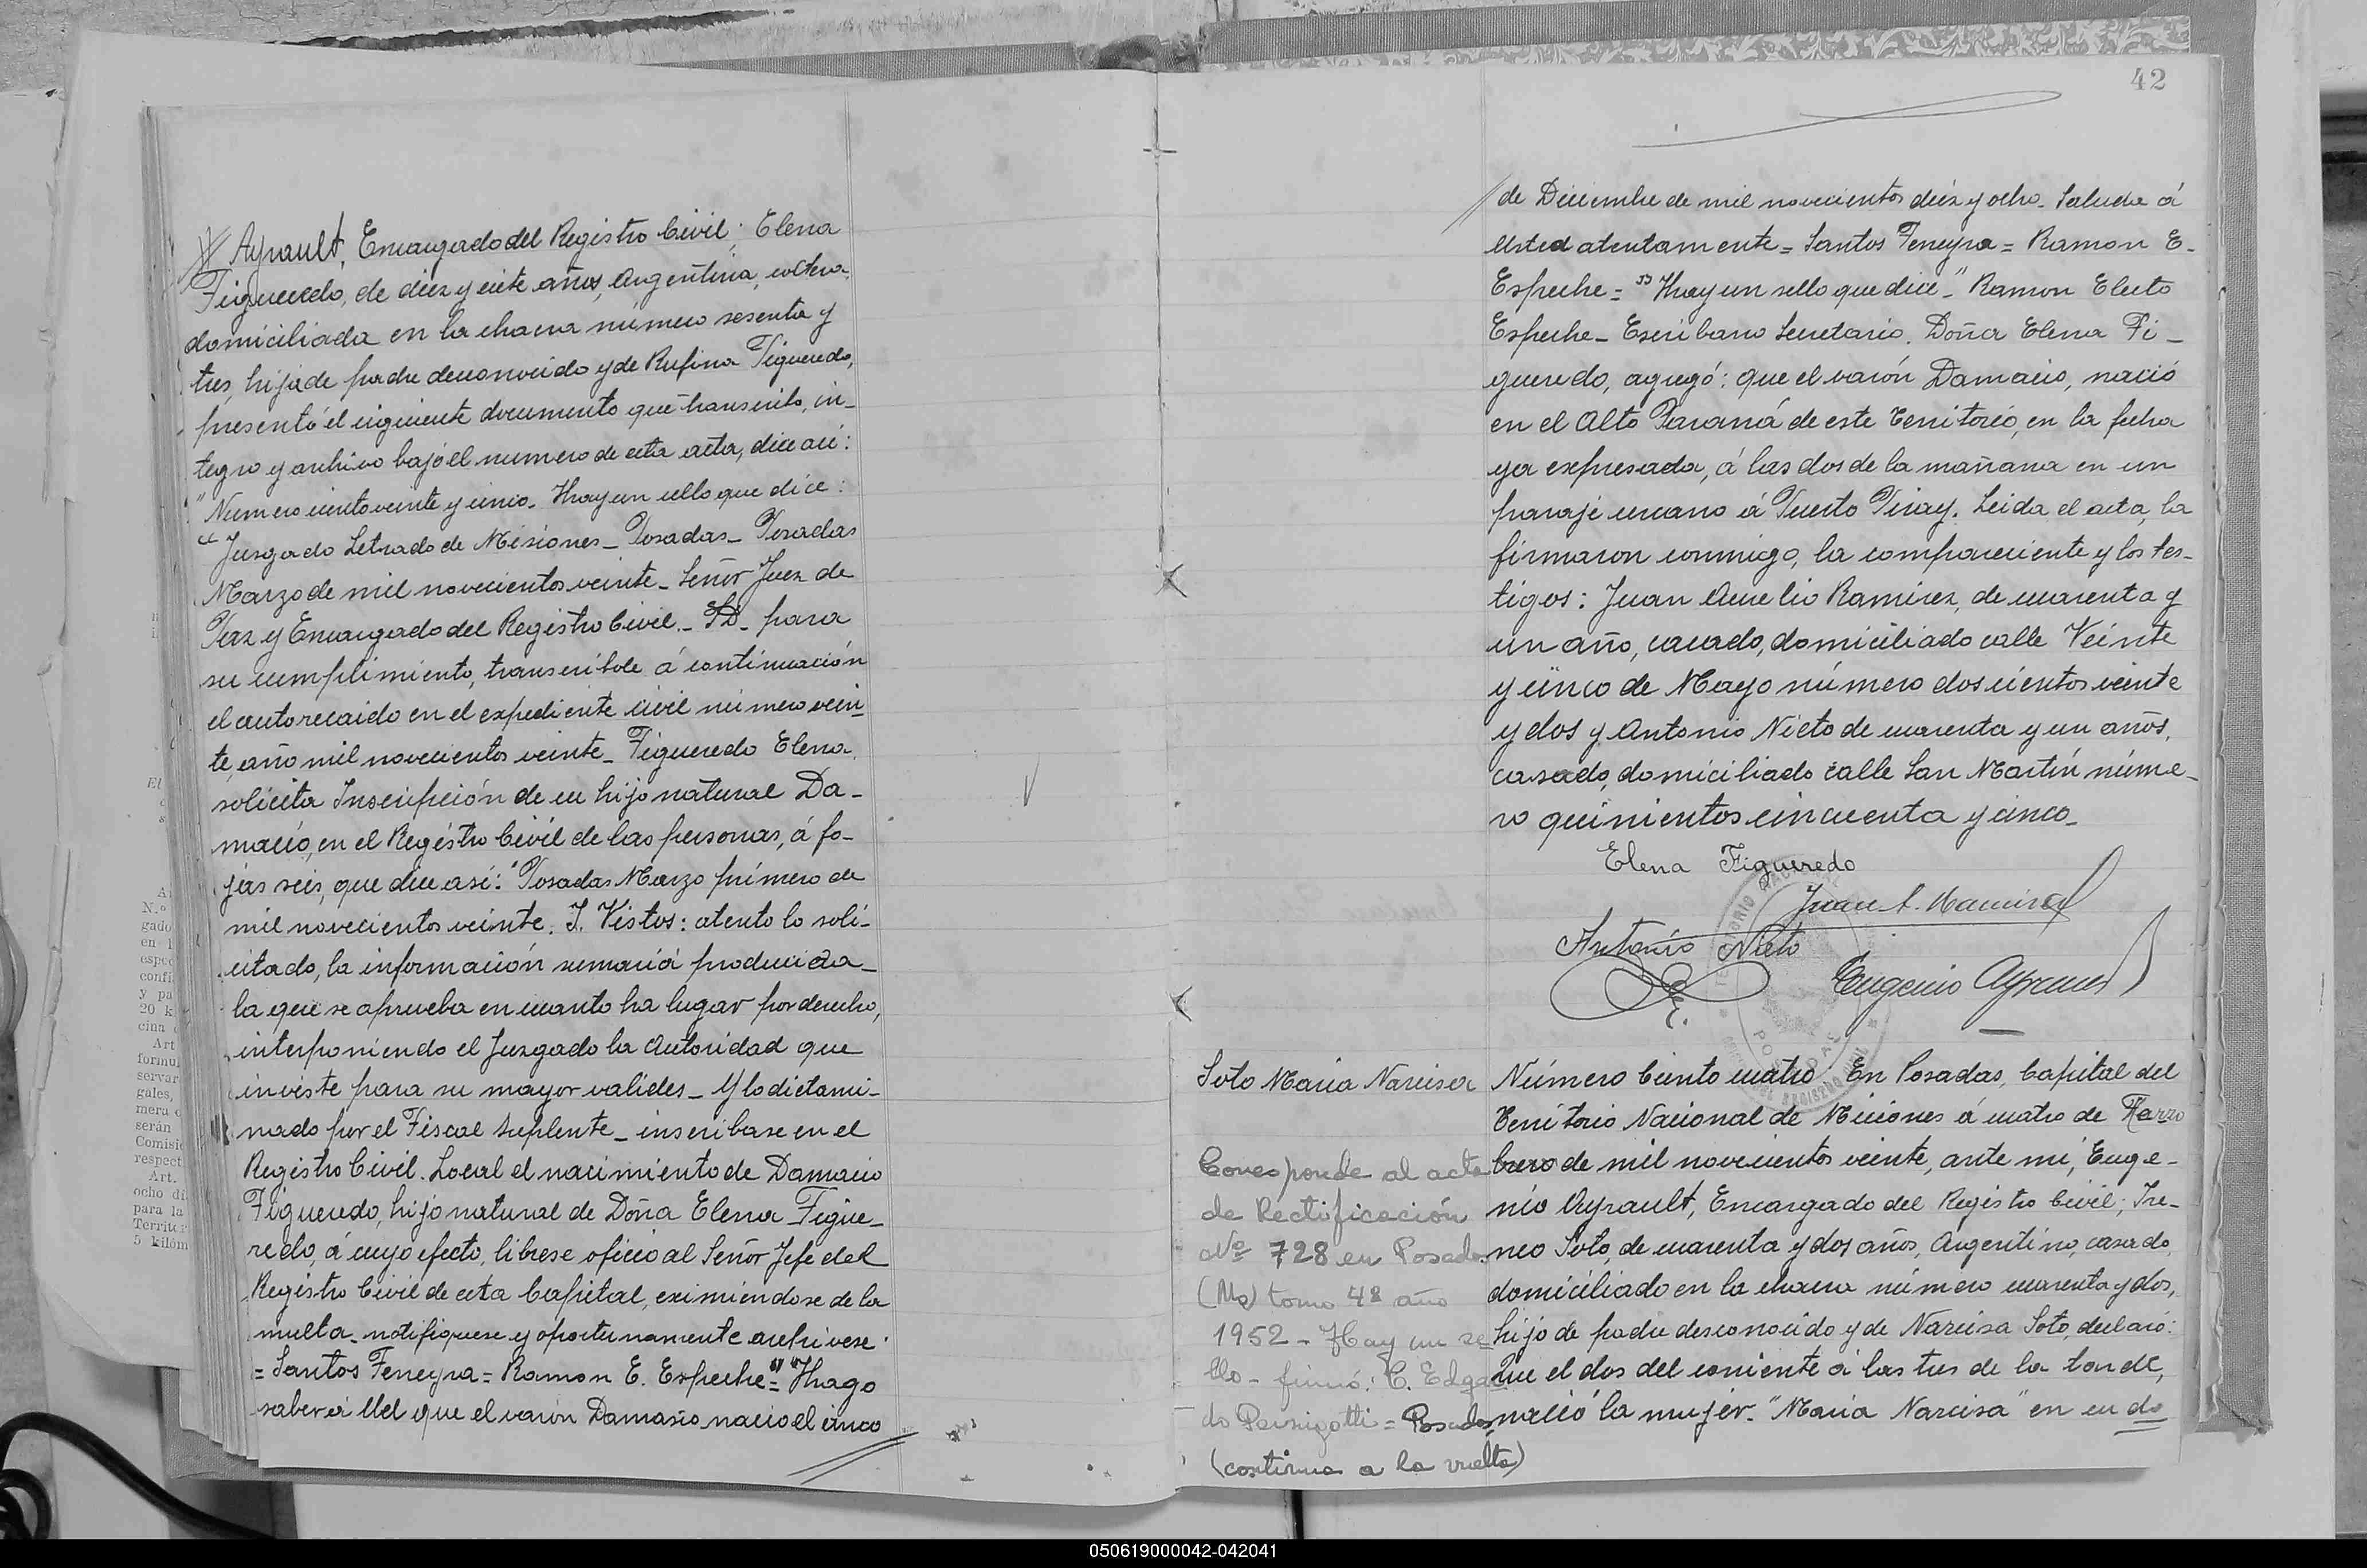 Ayrault, Encargado del Registro Civil; Elena
Figueredo, de diez y siete años, Argentina, soltera,
domiciliada en la chacra numero sesenta y
tres, hija de padre desconocido y de Rufina Figueredo,
presentó el siguiente documento que transcribo, in-
tegro y archivo bajo el numero de esta acta, dice así:
"Numero ciento veinte y cinco. Hay un sello que dice:
"Juzgado Letrado de Misiones - Posadas - Posadas
Marzo de mil novecientos veinte - Señor Juez de
Paz y Encargado del Registro Civil - S/D - para
su cumplimiento, transcribole á continuación
el auto recaido en el expediente civil número vein-
te, año mil novecientos veinte - Figueredo Elena,
solicita Inscripción de su hijo natural Da-
macio, en el Registro Civil de las personas, á fo-
jas seis, que dice así: "Posadas Marzo primero de
mil novecientos veinte. Y. Vistos: atento lo soli-
citado, la información sumaria producida -
la que se aprueba en cuanto ha lugar por derecho,
interponiendo el Juzgado la Autoridad que
inviste para su mayor valides - Y lo dictami-
nado por el Fiscal Suplente - inscribase en el
Registro Civil Local el nacimiento de Damacio
Figueredo, hijo natural de Doña Elena Figue-
redo, á cuyo efecto, librese oficio al Señor Jefe del
Registro Civil de esta Capital, eximiendose de la
multa - notifiquese y oportunamente archivese.
= Santos Feneyra = Ramon E. Espeche =" "Hago
saber á Ud que el varón Damacio nacio el cinco
42
de Diciembre de mil novecientos diez y ocho. Saluda á
Usted atentamente = Santos Feneyra = Ramon E.
Espeche = "Hay un sello que dice" Ramon Electo
Espeche - Escribano Secretario. Doña Elena Fi-
gueredo, agregó: que el varón Damacio, nació
en el Alto Paraná de este Territorio, en la fecha
ya expresada, á las dos de la mañana en un
paraje cercano á Puerto Piray. Leida el acta, la
firmaron conmigo, la compareciente y los tes-
tigos: Juan Aurelio Ramirez, de cuarenta y
un año, casado, domiciliado calle Veinte
y cinco de Mayo número doscientos veinte
y dos y Antonio Nieto de cuarenta y un años,
casado, domiciliado calle San Martín núme-
ro quinientos cincuenta y cinco -
Elena Figueredo
Juan A. Ramirez
Antonio Nieto
Eugenio Ayrault
Soto Maria Narcisa
Número Ciento cuatro En Posadas, Capital del
Territorio Nacional de Misiones á cuatro de Marzo
brero de mil novecientos veinte, ante mi, Euge-
nio Ayrault, Encargado del Registro Civil; Ire-
neo Soto, de cuarenta y dos años, Argentino, casado,
domiciliado en la chacra número cuarenta y dos,
hijo de padre desconocido y de Narcisa Soto, declaró:
Que el dos del corriente á las tres de la tarde,
nació la mujer. "Maria Narcisa" en su do
Corresponde al acta
de Rectificación
Nº 728 en Posadas
(Ms) tomo 48 año
1952 - Hay un se
llo - firmó: C. Edgar
do Persigotti = Posadas,
(continua a la vuelta)
050619000042-042041